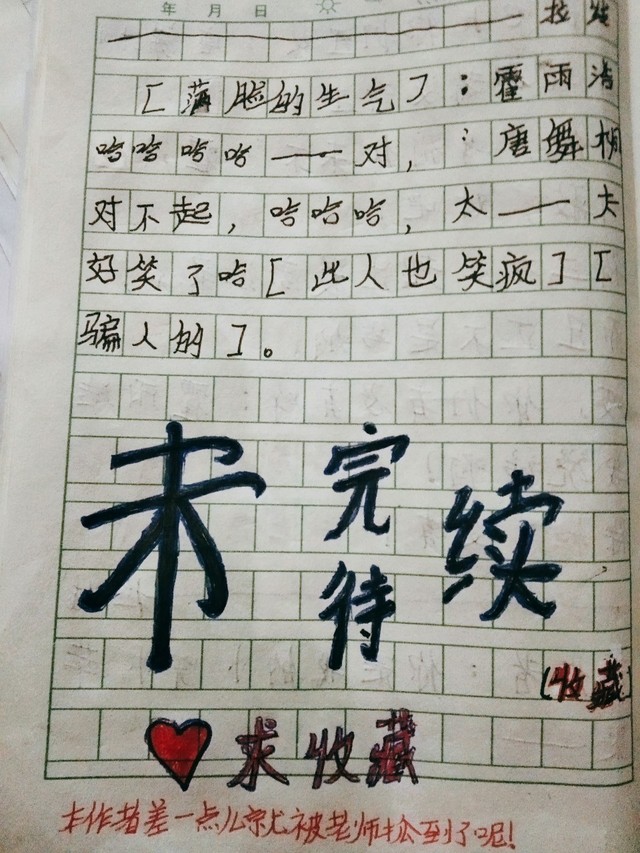 年 月 日
拉
[薄脸的生气]：霍雨浩
哈哈哈哈——对，：唐舞桐
对不起，哈哈哈，太——夫
好笑了哈[此人也笑疯][
骗人的]。
未完待续
(收藏
求收藏
本作者差一点儿就被老师抢到了呢!